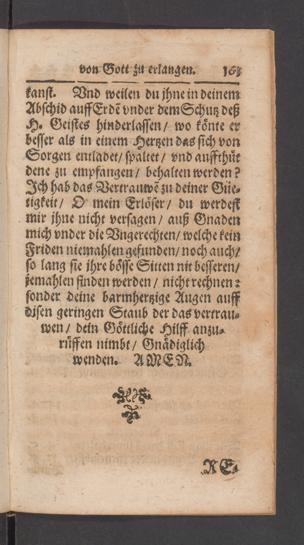 von Gott zu erlangen. 163
kanst. Vnd weilen du jhne in deinem
Abschid auff Erdē vnder dem Schutz deß
H. Geistes hinderlassen / wo könte er
besser als in einem Hertzen das sich von
Sorgen entladet / spaltet / vnd auffthüt
dene zu empfangen / behalten werden ?
Ich hab das Vertrauwē zu deiner Güe-
tigkeit / O mein Erlöser / du werdest
mir jhne nicht versagen / auß Gnaden
mich vnder die Vngerechten / welche kein
Friden niemahlen gefunden / noch auch /
so lang sie ihre bösse Sitten nit besseren /
jemahlen finden werden / nicht rechnen :
sonder deine barmhertzige Augen auff
disen geringen Staub der das vertrau-
wen / dein Göttliche Hilff anzu-
rüffen nimbt / Gnädiglich
wenden. AMEN.
RE-